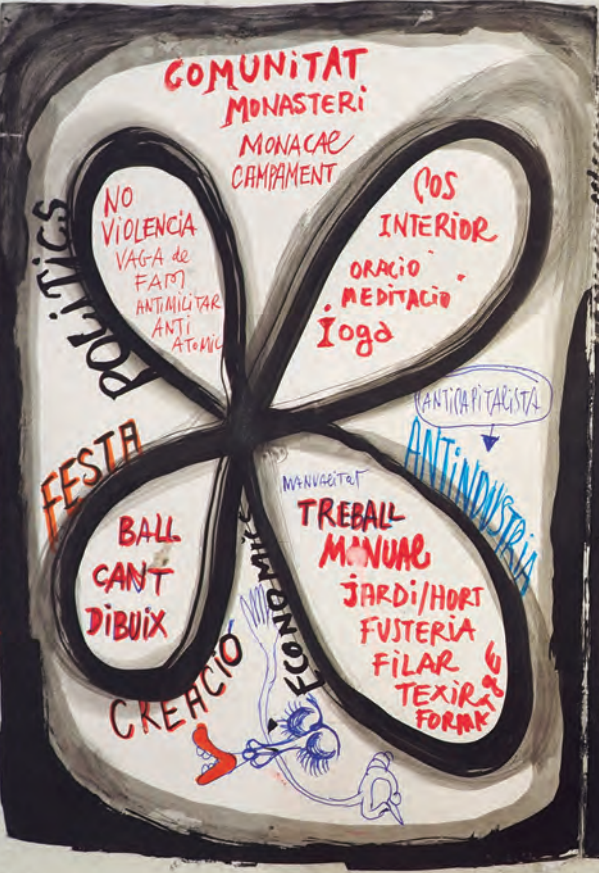 COMUNITAT
MONASTERI
MONACAL
CAMPAMENT
POLITICS
NO
VIOLENCIA
VAGA de
FAM
ANTIMILITAR
ANTI
ATOMIC
COS
INTERIOR
ORACIO
MEDITACIO
Ioga
ANTICAPITALISTA
ANTINDUSTRIA
FESTA
BALL
CANT
DIBUIX
CREACIÓ
MANUALITAT
TREBALL
MANUAL
JARDI/HORT
FUSTERIA
FILAR
TEXIR
FORMATGE